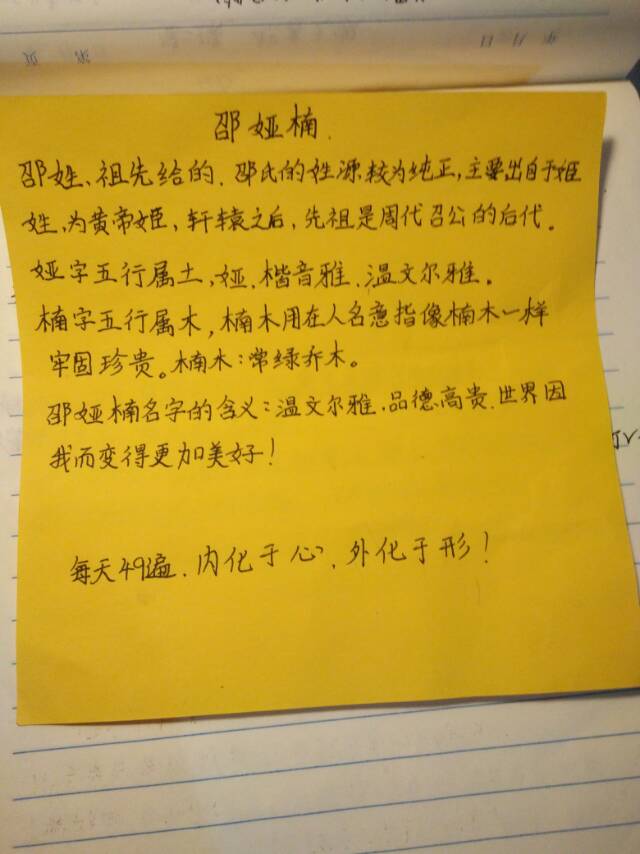 邵娅楠.
邵姓、祖先给的.邵氏的姓源较为纯正,主要出自于姬
姓,为黄帝姬,轩辕之后,先祖是周代召公的后代。
娅字五行属土,娅,楷音雅.温文尔雅。
楠字五行属木,楠木用在人名意指像楠木一样
牢固珍贵。楠木:常绿乔木。
邵娅楠名字的含义:温文尔雅.品德高贵.世界因
我而变得更加美好!
每天49遍.内化于心.外化于形!